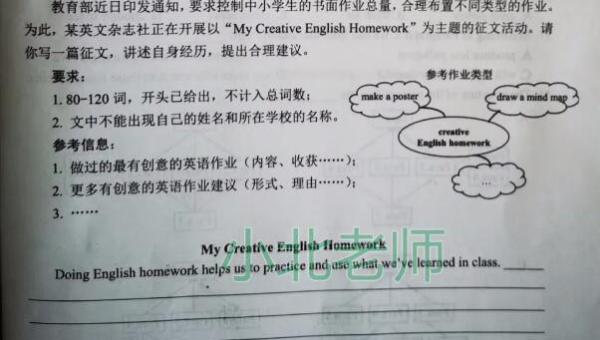 教育部近日印发通知，要求控制中小学生的书面作业总量，合理布置不同类型的作业。
为此，某英文杂志社正在开展以“My Creative English Homework”为主题的征文活动。请
你写一篇征文，讲述自身经历，提出合理建议。
要求：
1. 80-120 词，开头已给出，不计入总词数；
2. 文中不能出现自己的姓名和所在学校的名称。
参考信息：
1. 做过的最有创意的英语作业（内容、收获……）；
2. 更多有创意的英语作业建议（形式、理由……）；
3. ……
参考作业类型
make a poster
draw a mind map
creative
English homework
...
My Creative English Homework
Doing English homework helps us to practice and use what we've learned in class.
小北老师